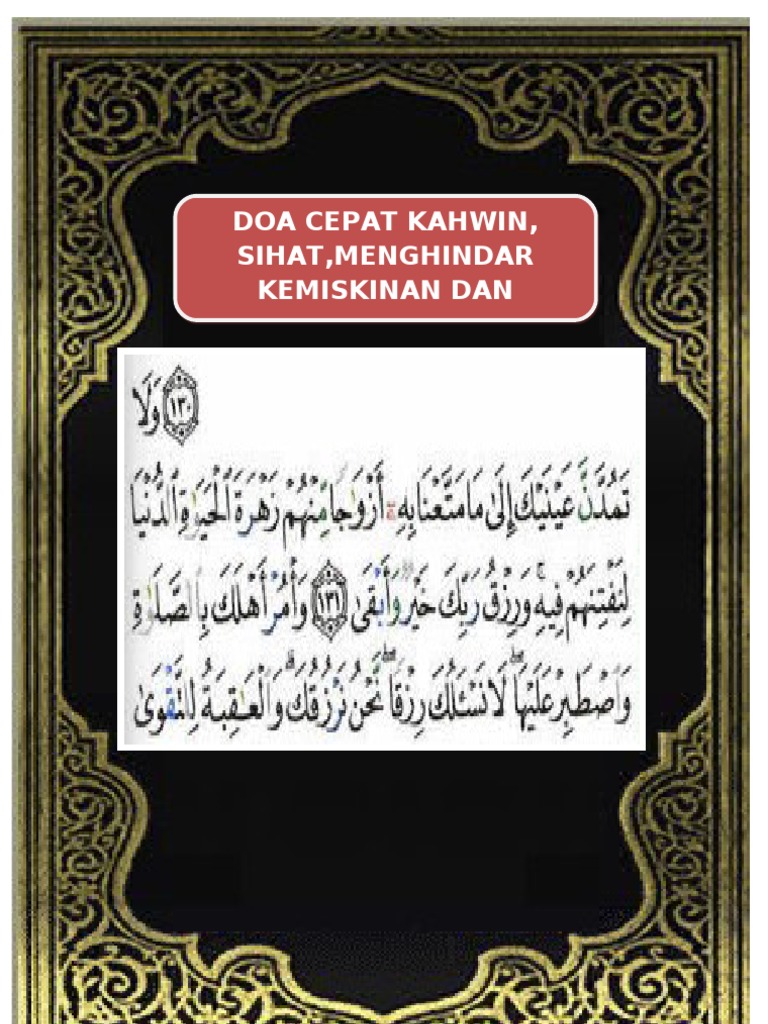 DOA CEPAT KAHWIN,
SIHAT,MENGHINDAR
KEMISKINAN DAN
١٣٠ وَلَا
تَمُدَّنَّ عَيْنَيْكَ إِلَىٰ مَا مَتَّعْنَا بِهِۦٓ أَزْوَٰجًا مِّنْهُمْ زَهْرَةَ ٱلْحَيَوٰةِ ٱلدُّنْيَا
لِنَفْتِنَهُمْ فِيهِ ۚ وَرِزْقُ رَبِّكَ خَيْرٌ وَأَبْقَىٰ ١٣١ وَأْمُرْ أَهْلَكَ بِٱلصَّلَوٰةِ
وَٱصْطَبِرْ عَلَيْهَا ۖ لَا نَسْـَٔلُكَ رِزْقًا ۖ نَّحْنُ نَرْزُقُكَ ۗ وَٱلْعَـٰقِبَةُ لِلتَّقْوَىٰ